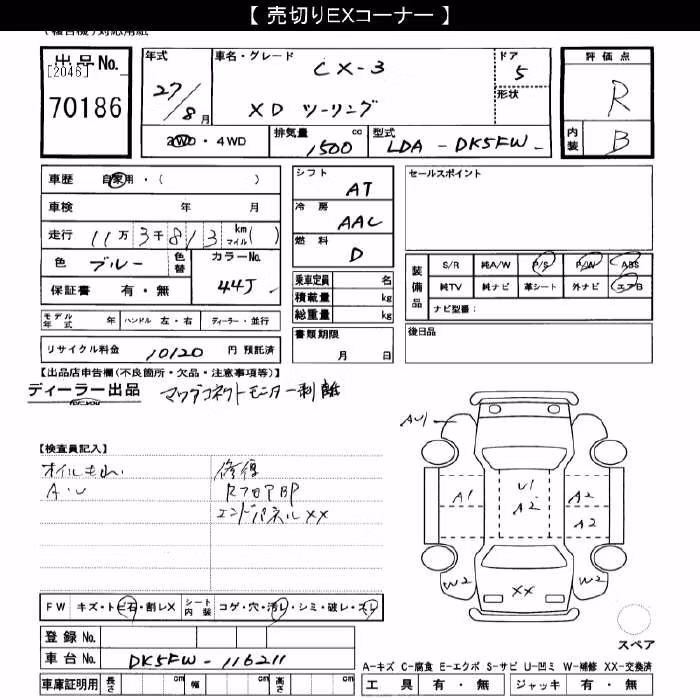 【 売切りEXコーナー 】
(複合機)対応用紙
出品No.
[2046]
70186
年式
27/8月
車名・グレード
CX-3
XD ツーリング
ドア
5
形状
2WD・4WD
排気量
1500 cc
型式
LDA - DK5FW -
評価点
R
内装
B
車歴 自家用・( )
車検 年 月
走行 11万3千813 km マイル( )
色 ブルー 色替
カラーNo. 44J
保証書 有・無
モデル年式 年 ハンドル 左・右 ディーラー・並行
リサイクル料金 10120 円 預託済
シフト
AT
冷房
AAC
燃料
D
乗車定員 名
積載量 kg
総重量 kg
書類期限
月 日
セールスポイント
装備品
S/R 純A/W P/S P/W ABS
純TV 純ナビ 革シート 外ナビ エアB
ナビ型番:
後日品
【出品店申告欄(不良箇所・欠品・注意事項等)】
ディーラー出品 マツダコネクトモニター剥離
for you
【検査員記入】
オイルもれ、
A・U
修復
RフロアBP
エンドパネルXX
AU1
A1
U1
A2
A2
A2
W2
W2
XX
スペア
FW キズ・トビ石・割レX シート内装 コゲ・穴・汚レ・シミ・破レ・スレ
登録No.
車台No. DK5FW - 116211
車庫証明用 長さ cm 幅 cm 高さ cm
A-キズ C-腐食 E-エクボ S-サビ U-凹ミ W-補修 XX-交換済
工具 有・無 ジャッキ 有・無